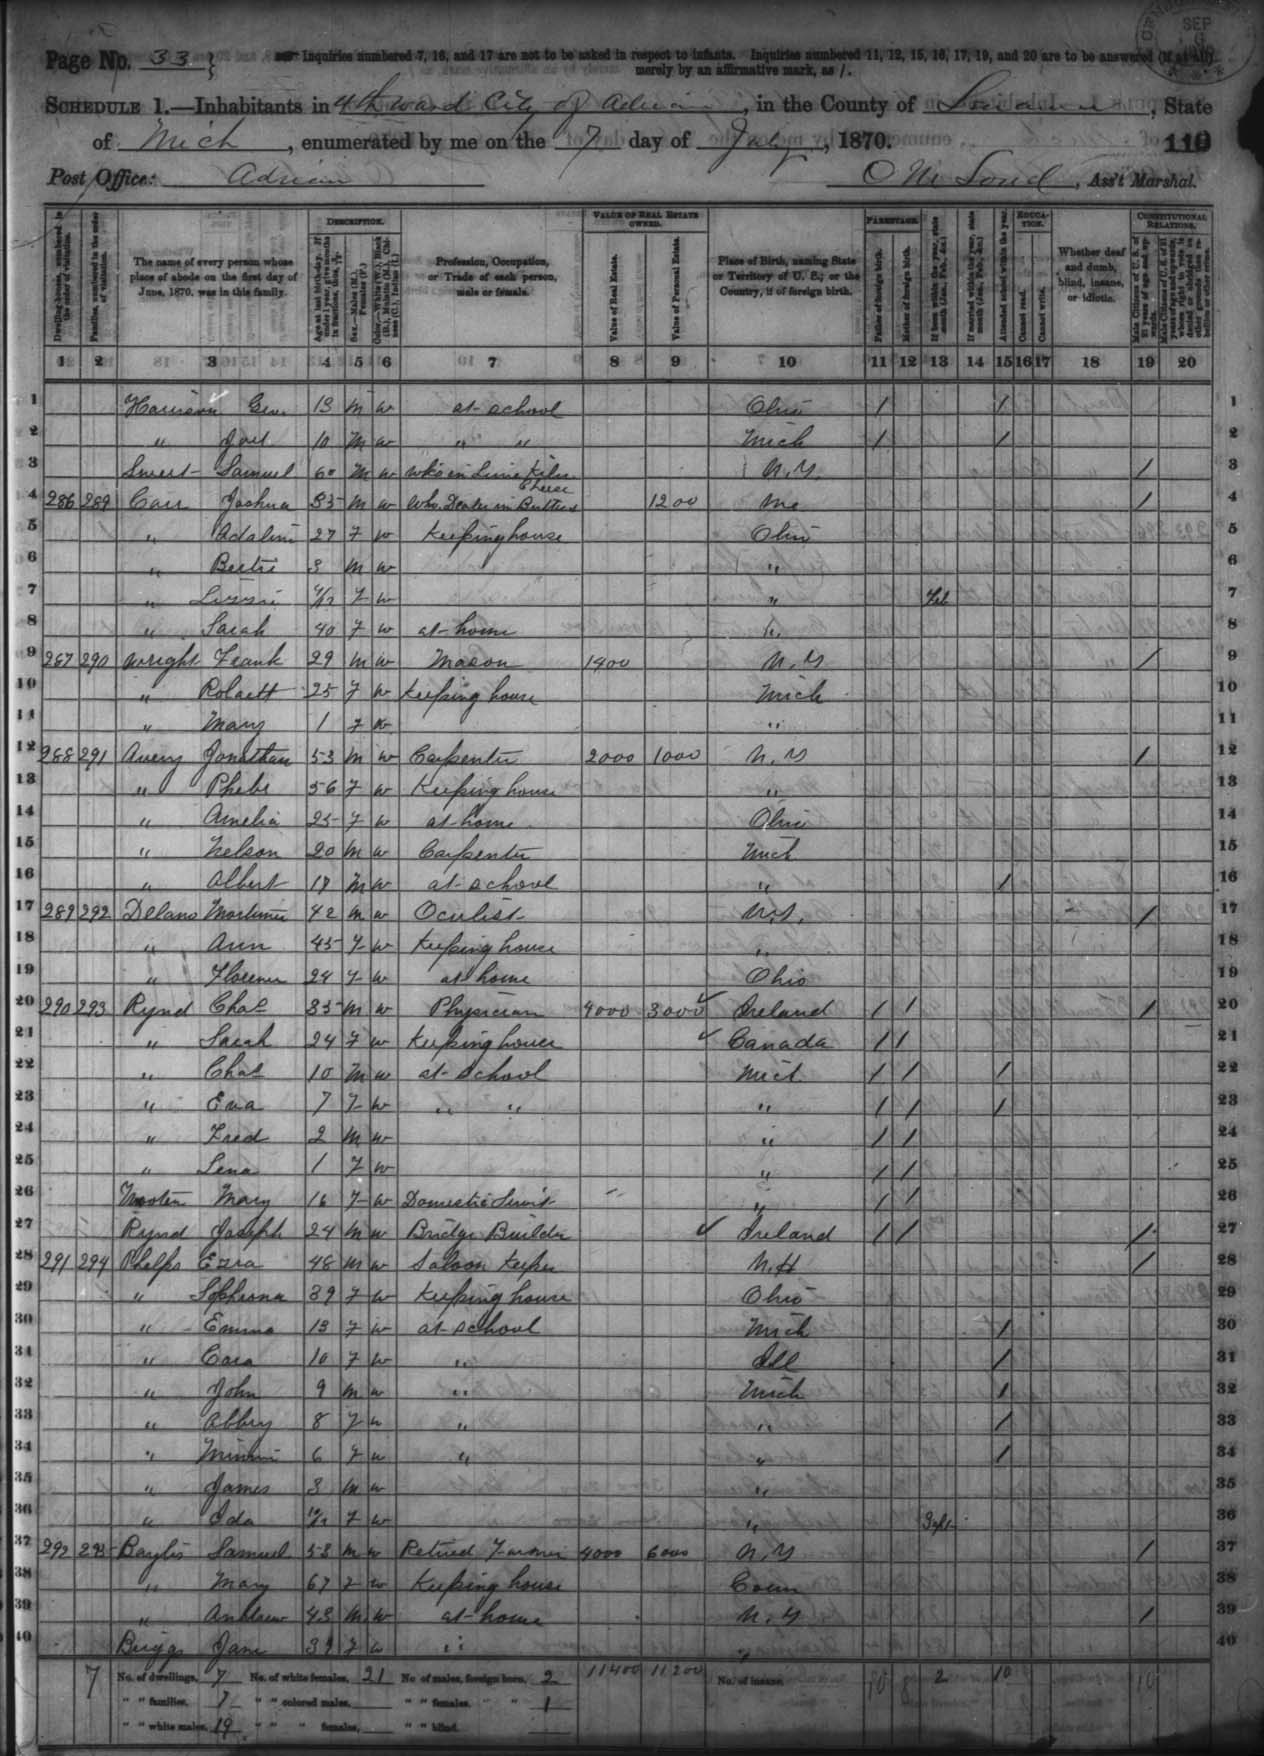 Page No. 33
Inquiries numbered 7, 16, and 17 are not to be asked in respect to infants. Inquiries numbered 11, 12, 15, 16, 17, 19, and 20 are to be answered (if at all) merely by an affirmative mark, as /.
SCHEDULE 1.—Inhabitants in 4th ward City of Adrian, in the County of Lenawee, State
of Mich, enumerated by me on the 7 day of July, 1870. 110
Post Office: Adrian, Ass't Marshal.
DESCRIPTION. VALUE OF REAL ESTATE OWNED. PARENTAGE. EDUCATION. CONSTITUTIONAL RELATIONS.
Dwelling-houses, numbered in the order of visitation.
Families, numbered in the order of visitation.
The name of every person whose place of abode on the first day of June, 1870, was in this family.
Profession, Occupation, or Trade of each person, male or female.
Value of Real Estate.
Value of Personal Estate.
Place of Birth, naming State or Territory of U. S.; or the Country, if of foreign birth.
Father of foreign birth.
Mother of foreign birth.
Attended school within the year.
Cannot read.
Cannot write.
Whether deaf and dumb, blind, insane, or idiotic.
1 2 3 4 5 6 7 8 9 10 11 12 13 14 15 16 17 18 19 20
1 Harrison Geo. 13 M W at school Ohio / / 1
2 " Joel 10 M W " " Mich / / 2
3 Samuel 60 M W N.Y. / 3
4 286 289 Carr Joshua 35 M W Who. Dealer in Butter Cheese 1200 Me / 4
5 " Adaline 27 F W Keeping house Ohio 5
6 " Bertie 3 M W " 6
7 " Lizzie F W " Feb 7
8 " Sarah 40 F W at home " 8
9 287 290 Wright Frank 29 M W Mason 1400 N.Y / 9
10 " 25 F W Keeping house Mich 10
11 " Mary 1 F W " 11
12 288 291 Avery Jonathan 53 M W Carpenter 2000 1000 N.Y / 12
13 " Phebe 56 F W Keeping house " 13
14 " Amelia 25 F W at home Ohio 14
15 " Nelson 20 M W Carpenter Mich 15
16 " Albert 17 M W at school " / 16
17 289 292 Delano Mortimer 42 M W Oculist N.Y. / 17
18 " Ann 45 F W Keeping house " 18
19 " Florence 24 F W at home Ohio 19
20 290 293 Rynd Chas 35 M W Physician 4000 3000 Ireland / / / 20
21 " Sarah 24 F W Keeping house Canada / / 21
22 " Chas 10 M W at school Mich / / / 22
23 " Eva 7 F W " " " / / / 23
24 " Fred 2 M W " / / 24
25 " Lena 1 F W " / / 25
26 Mary 16 F W Domestic Serv't " / / 26
27 Rynd Joseph 24 M W Bridge Builder Ireland / / / 27
28 291 294 Phelps Ezra 48 M W Saloon Keeper N.H / 28
29 " Sophrona 39 F W Keeping house Ohio 29
30 " Emma 13 F W at school Mich / 30
31 " Cora 10 F W " Ill / 31
32 " John 9 M W " Mich / 32
33 " Abby 8 F W " " / 33
34 " Minnie 6 F W " " / 34
35 " James 3 M W " 35
36 " Ida 10/12 F W " Sept 36
37 292 295 Baylis Samuel 58 M W Retired Farmer 4000 6000 N.Y / 37
38 " Mary 67 F W Keeping house Conn 38
39 " Andrew 43 M W at home N.Y / 39
40 Briggs Jane 39 F W " " 40
7 No. of dwellings, 7 No. of white females, 21 No. of males, foreign born, 2 11400 11200 No. of insane, 10 8 2 10 10
" " families, 7 " " colored males, " " females, " " 1
" " white males, 19 " " " females, " " blind,